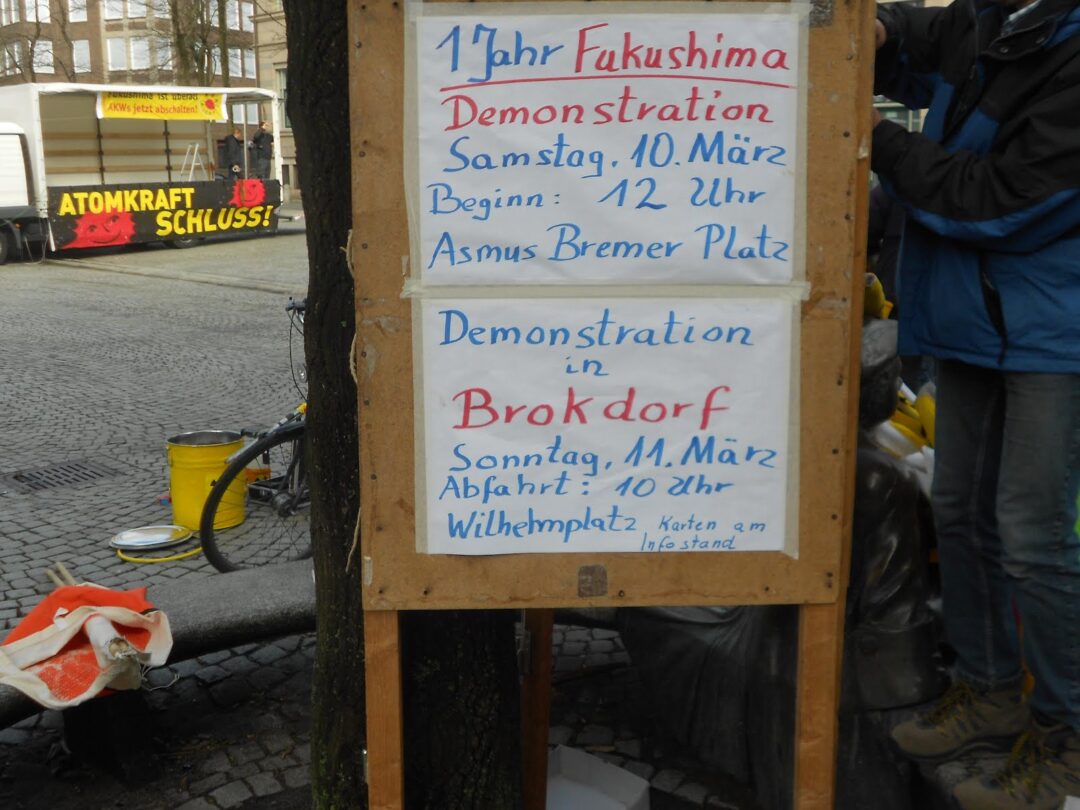 Fukushima ist überall
AKWs jetzt abschalten!
ATOMKRAFT
SCHLUSS!
1 Jahr Fukushima
Demonstration
Samstag, 10. März
Beginn: 12 Uhr
Asmus Bremer Platz
Demonstration
in
Brokdorf
Sonntag, 11. März
Abfahrt: 10 Uhr
Wilhelmplatz Karten am
Infostand